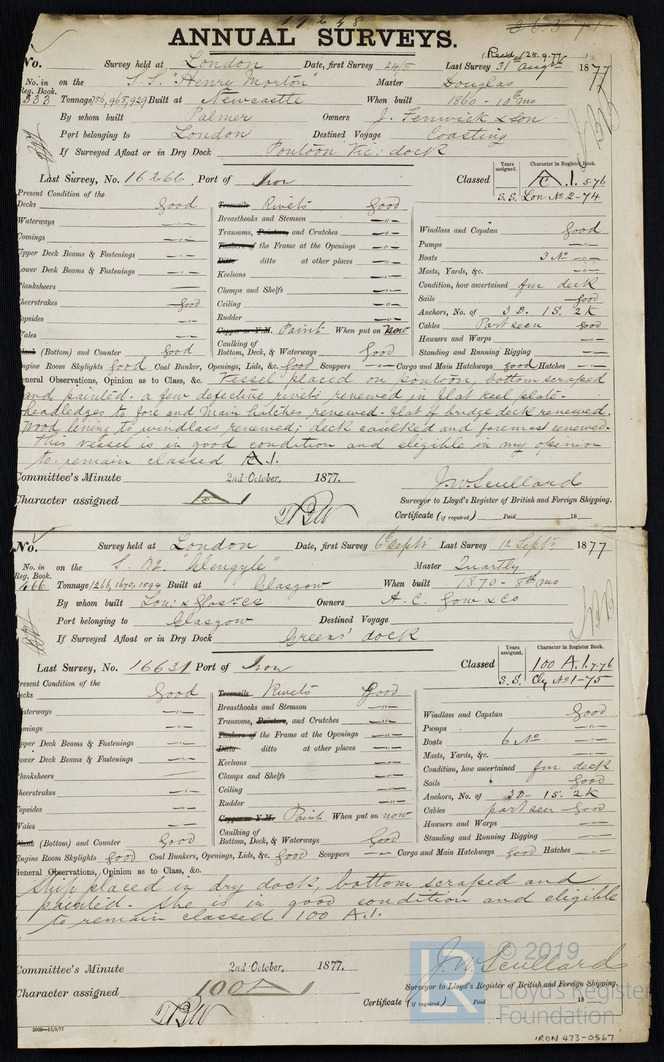 19248
ANNUAL SURVEYS.
No. Survey held at London Date, first Survey 24/8 Last Survey 31 Augst 1877
Recd 28.9.77
No. in Reg. Book. on the S.S. "Henry Morton" Master Douglas
333 Tonnage 786, 968, 929 Built at Newcastle When built 1860 - 10th mo
By whom built Palmer Owners J. Fenwick & Son
Port belonging to London Destined Voyage Coasting
If Surveyed Afloat or in Dry Dock Pontoon Vic: dock
Last Survey, No. 16266 Port of Iron Classed
Years assigned. Character in Register Book.
A.1. 5.76
S.S. Lon No 2-74
Present Condition of the
Decks Good
Waterways
Comings
Upper Deck Beams & Fastenings
Lower Deck Beams & Fastenings
Planksheers
Sheerstrakes Good
Topsides
Wales
(Bottom) and Counter Good
Treenails Rivets Good
Breasthooks and Stemson
Transoms, Pointers, and Crutches
Timbers of the Frame at the Openings
Ditto ditto at other places
Keelsons
Clamps and Shelfs
Ceiling
Rudder
Copper or Y.M. Paint When put on now
Caulking of Bottom, Deck, & Waterways Good
Windlass and Capstan Good
Pumps
Boats 3 No
Masts, Yards, &c.
Condition, how ascertained fm deck
Sails Good
Anchors, No. of 3 B. 1 S. 2 K
Cables Part seen Good
Hawsers and Warps
Standing and Running Rigging
Engine Room Skylights Good Coal Bunker, Openings, Lids, &c. Good Scuppers Cargo and Main Hatchways Good Hatches
General Observations, Opinion as to Class, &c. Vessel placed on pontoon, bottom scraped
and painted. a few defective rivets renewed in flat keel plate.
headledges to fore and main hatches renewed. flat of bridge deck renewed.
Wood lining to windlass renewed; deck caulked and foremast renewed.
This vessel is in good condition and eligible in my opinion
to remain classed A.1.
Committee's Minute 2nd October, 1877.
J.W. Scullard
Character assigned A 1
Surveyor to Lloyd's Register of British and Foreign Shipping.
Certificate (if required) Paid 18
No. Survey held at London Date, first Survey 6th Septr Last Survey 12 Septr 1877
No. in Reg. Book. on the "Glengyle" Master Quartly
466 Tonnage 1266, 1672, 1594 Built at Glasgow When built 1870 - 8th mo
By whom built Lon: & Glas: Co Owners A. C. Gow & Co
Port belonging to Glasgow Destined Voyage
If Surveyed Afloat or in Dry Dock Greens' dock
Last Survey, No. 16631 Port of Iron Classed
Years assigned. Character in Register Book.
100 A.1. 7.76
S.S. Cly No 1-75
Present Condition of the
Decks Good
Waterways
Comings
Upper Deck Beams & Fastenings
Lower Deck Beams & Fastenings
Planksheers
Sheerstrakes
Topsides
Wales
(Bottom) and Counter Good
Treenails Rivets Good
Breasthooks and Stemson
Transoms, Pointers, and Crutches
Timbers of the Frame at the Openings
Ditto ditto at other places
Keelsons
Clamps and Shelfs
Ceiling
Rudder
Copper or Y.M. Paint When put on now
Caulking of Bottom, Deck, & Waterways Good
Windlass and Capstan Good
Pumps
Boats 6 No
Masts, Yards, &c.
Condition, how ascertained fm deck
Sails Good
Anchors, No. of 3 B- 1 S. 2 K
Cables part seen Good
Hawsers and Warps
Standing and Running Rigging
Engine Room Skylights Good Coal Bunkers, Openings, Lids, &c. Good Scuppers Cargo and Main Hatchways Good Hatches
General Observations, Opinion as to Class, &c.
Ship placed in dry dock, bottom scraped and
painted. She is in good condition and eligible
to remain classed 100 A.1.
J.W. Scullard
Committee's Minute 2nd October, 1877.
Character assigned 100 A 1
Surveyor to Lloyd's Register of British and Foreign Shipping.
Certificate (if required) Paid 18
2000-15/5/77
© 2019
LR
Lloyd's Register
Foundation
IRON 473-0567